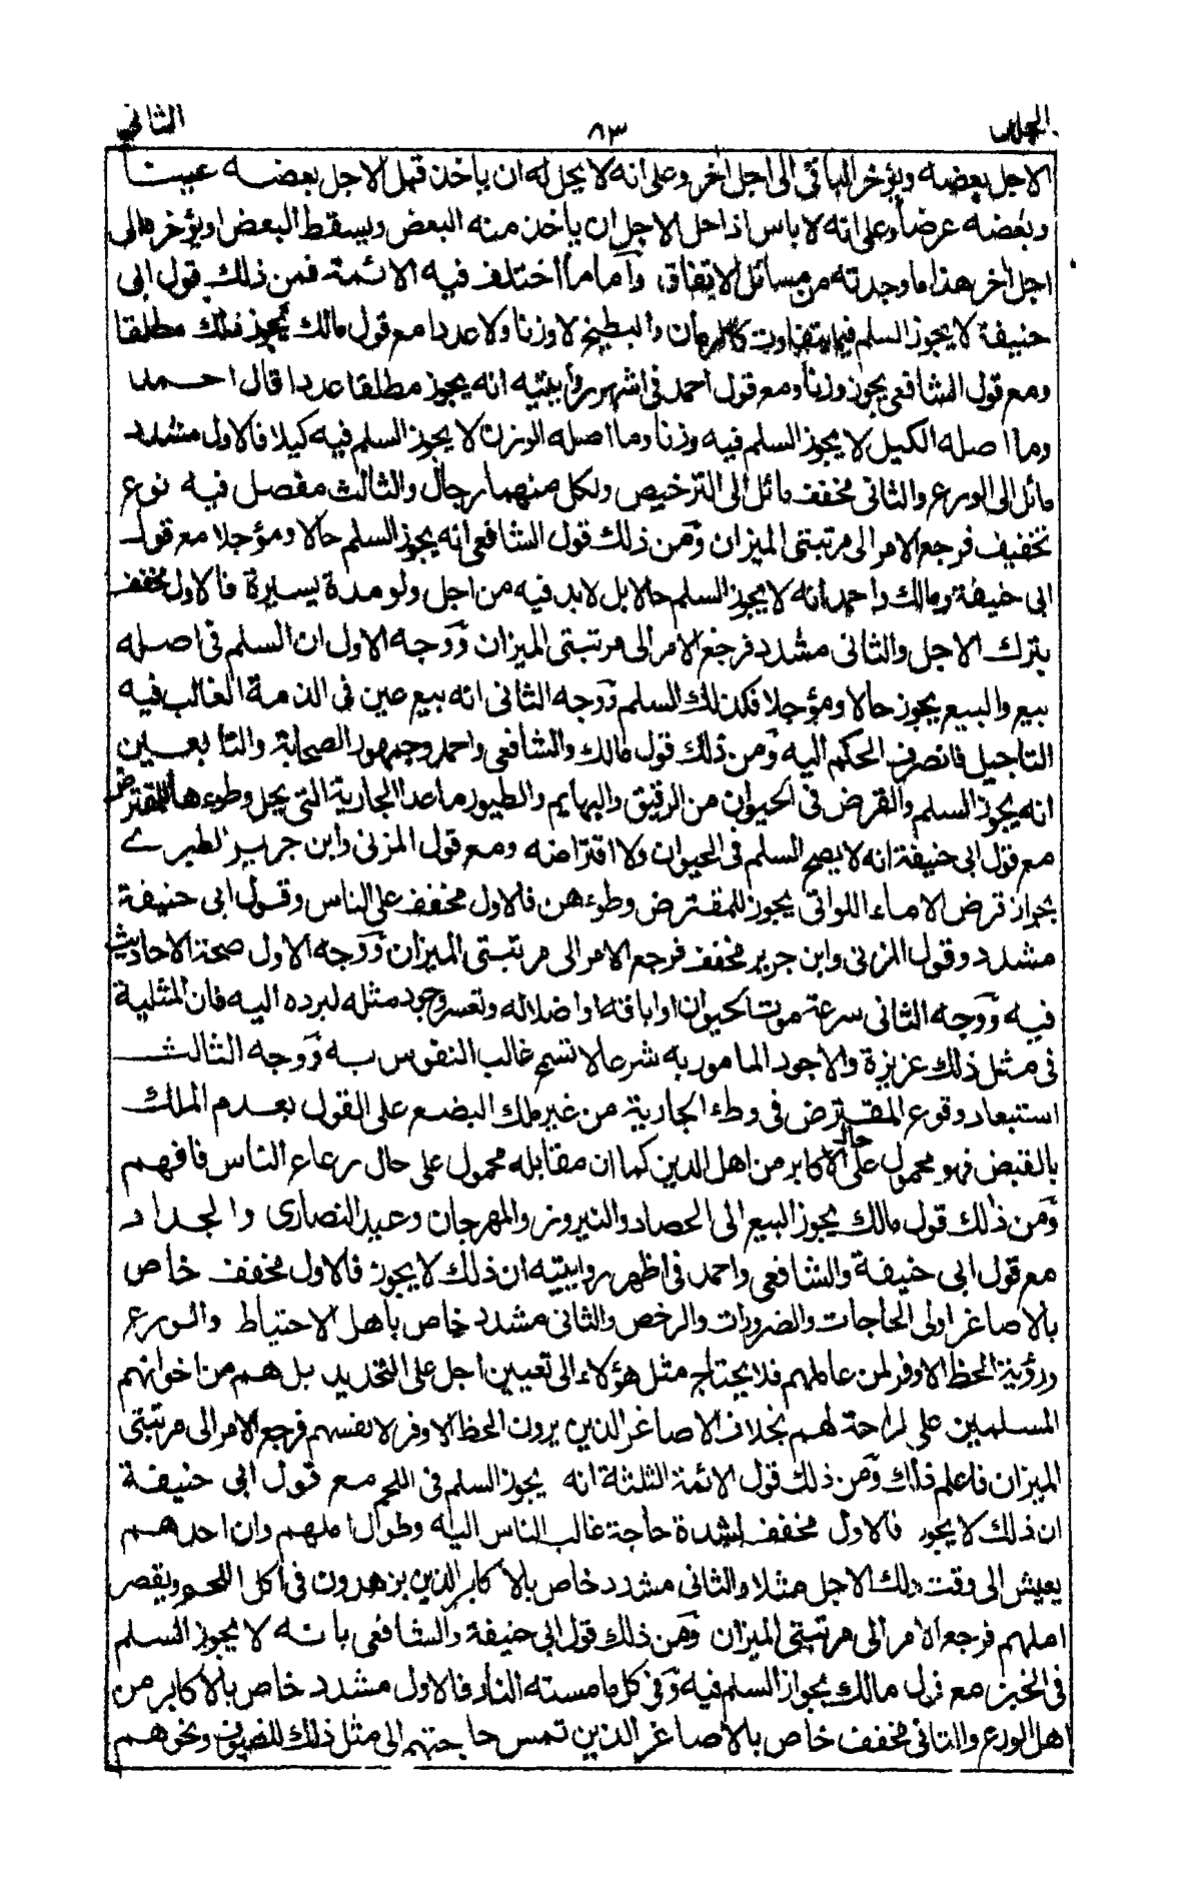 الجلد ٨٣ الثاني
الاجل بعضه ويؤخر الباقى الى اجل اخر وعلى انه لا يحل له ان ياخذ قبل الاجل بعضه عينا
وبعضه عرضا وعلى انه لا باس اذا حل الاجل ان ياخذ منه البعض ويسقط البعض او يؤخره الى
اجل اخر هذا ما وجدته من مسائل الاتفاق، وآما ما اختلف فيه الائمة فمن ذلك قول ابى
حنيفة لا يجوز السلم فيما يتفاوت كالرمان والبطيخ لا وزنا ولا عددا مع قول مالك يجوز ذلك مطلقا
ومع قول الشافعى يجوز وزنا ومع قول احمد فى اشهر روايتيه انه يجوز مطلقا عددا قال احمد
وما اصله الكيل لا يجوز السلم فيه وزنا وما اصله الوزن لا يجوز السلم فيه كيلا فالاول مشدد
مائل الى الورع والثانى مخفف مائل الى الترخيص ولكل منهما رجال والثالث مفصل فيه نوع
تخفيف فرجع الامر الى مرتبتى الميزان وَمن ذلك قول الشافعى انه يجوز السلم حالا ومؤجلا مع قول
ابى حنيفة ومالك واحمد انه لا يجوز السلم حالا بل لابد فيه من اجل ولو مدة يسيرة فالاول مخفف
بترك الاجل والثانى مشدد فرجع الامر الى مرتبتى الميزان وَوجه الاول ان السلم فى اصله
بيع والبيع يجوز حالا ومؤجلا فكذلك السلم وَوجه الثانى انه بيع عين فى الذمة الغالب فيه
التاجيل فانصرف الحكم اليه وَمن ذلك قول مالك والشافعى واحمد وجمهور الصحابة والتابعين
انه يجوز السلم والقرض فى الحيوان من الرقيق والبهايم والطيور ماعدا الجارية التى يحل وطوءها للمقترض
مع قول ابى حنيفة انه لا يصح السلم فى الحيوان ولا اقتراضه ومع قول المزنى وابن جرير الطبرے
بجواز قرض الاماء اللواتى يجوز للمقترض وطوءهن فالاول مخفف على الناس وقول ابى حنيفة
مشدد وقول المزنى وابن جرير مخفف فرجع الامر الى مرتبتى الميزان وَوجه الاول صحة الاحاديث
فيه وَوجه الثانى سرعة موت الحيوان او اباقه او اضلاله وتعسر وجود مثله ليرده اليه فان المثلية
فى مثل ذلك عزيزة والاجود المامور به شرعا لا تسمح غالب النفوس به وَوجه الثالث
استبعاد وقوع المقترض فى وطء الجارية من غير ملك البضع على القول بعدم الملك
بالقبض فهو محمول على حال الاكابر من اهل الدين كما ان مقابله محمول على حال رعاع الناس فافهم
وَمن ذلك قول مالك يجوز البيع الى الحصاد والنيروز والمهرجان وعيد النصارى والجداد
مع قول ابى حنيفة والشافعى واحمد فى اظهر روايتيه ان ذلك لا يجوز فالاول مخفف خاص
بالاصاغر اولى الحاجات والضرورات والرخص والثانى مشدد خاص باهل الاحتياط والورع
ورؤية الحظ الاوفر لمن عاملهم فلا يحتاج مثل هؤلاء الى تعيين اجل على التحديد بل هم من اخوانهم
المسلمين على راحة لهم بخلاف الاصاغر الذين يرون الحظ الاوفر لانفسهم فرجع الامر الى مرتبتى
الميزان فاعلم ذلك وَمن ذلك قول الائمة الثلثة انه يجوز السلم فى اللحم مع قول ابى حنيفة
ان ذلك لا يجوز فالاول مخفف لشدة حاجة غالب الناس اليه وطول املهم وان احدهم
يعيش الى وقت ذلك الاجل مثلا والثانى مشدد خاص بالاكابر الذين يزهدون فى اكل اللحم ويقصر
املهم فرجع الامر الى مرتبتى الميزان وَمن ذلك قول ابى حنيفة والشافعى بانه لا يجوز السلم
فى الخبز مع قول مالك بجواز السلم فيه وَفى كل ما مسته النار فالاول مشدد خاص بالاكابر من
اهل الورع والثانى مخفف خاص بالاصاغر الذين تمس حاجتهم الى مثل ذلك للضيوف ونحوهم